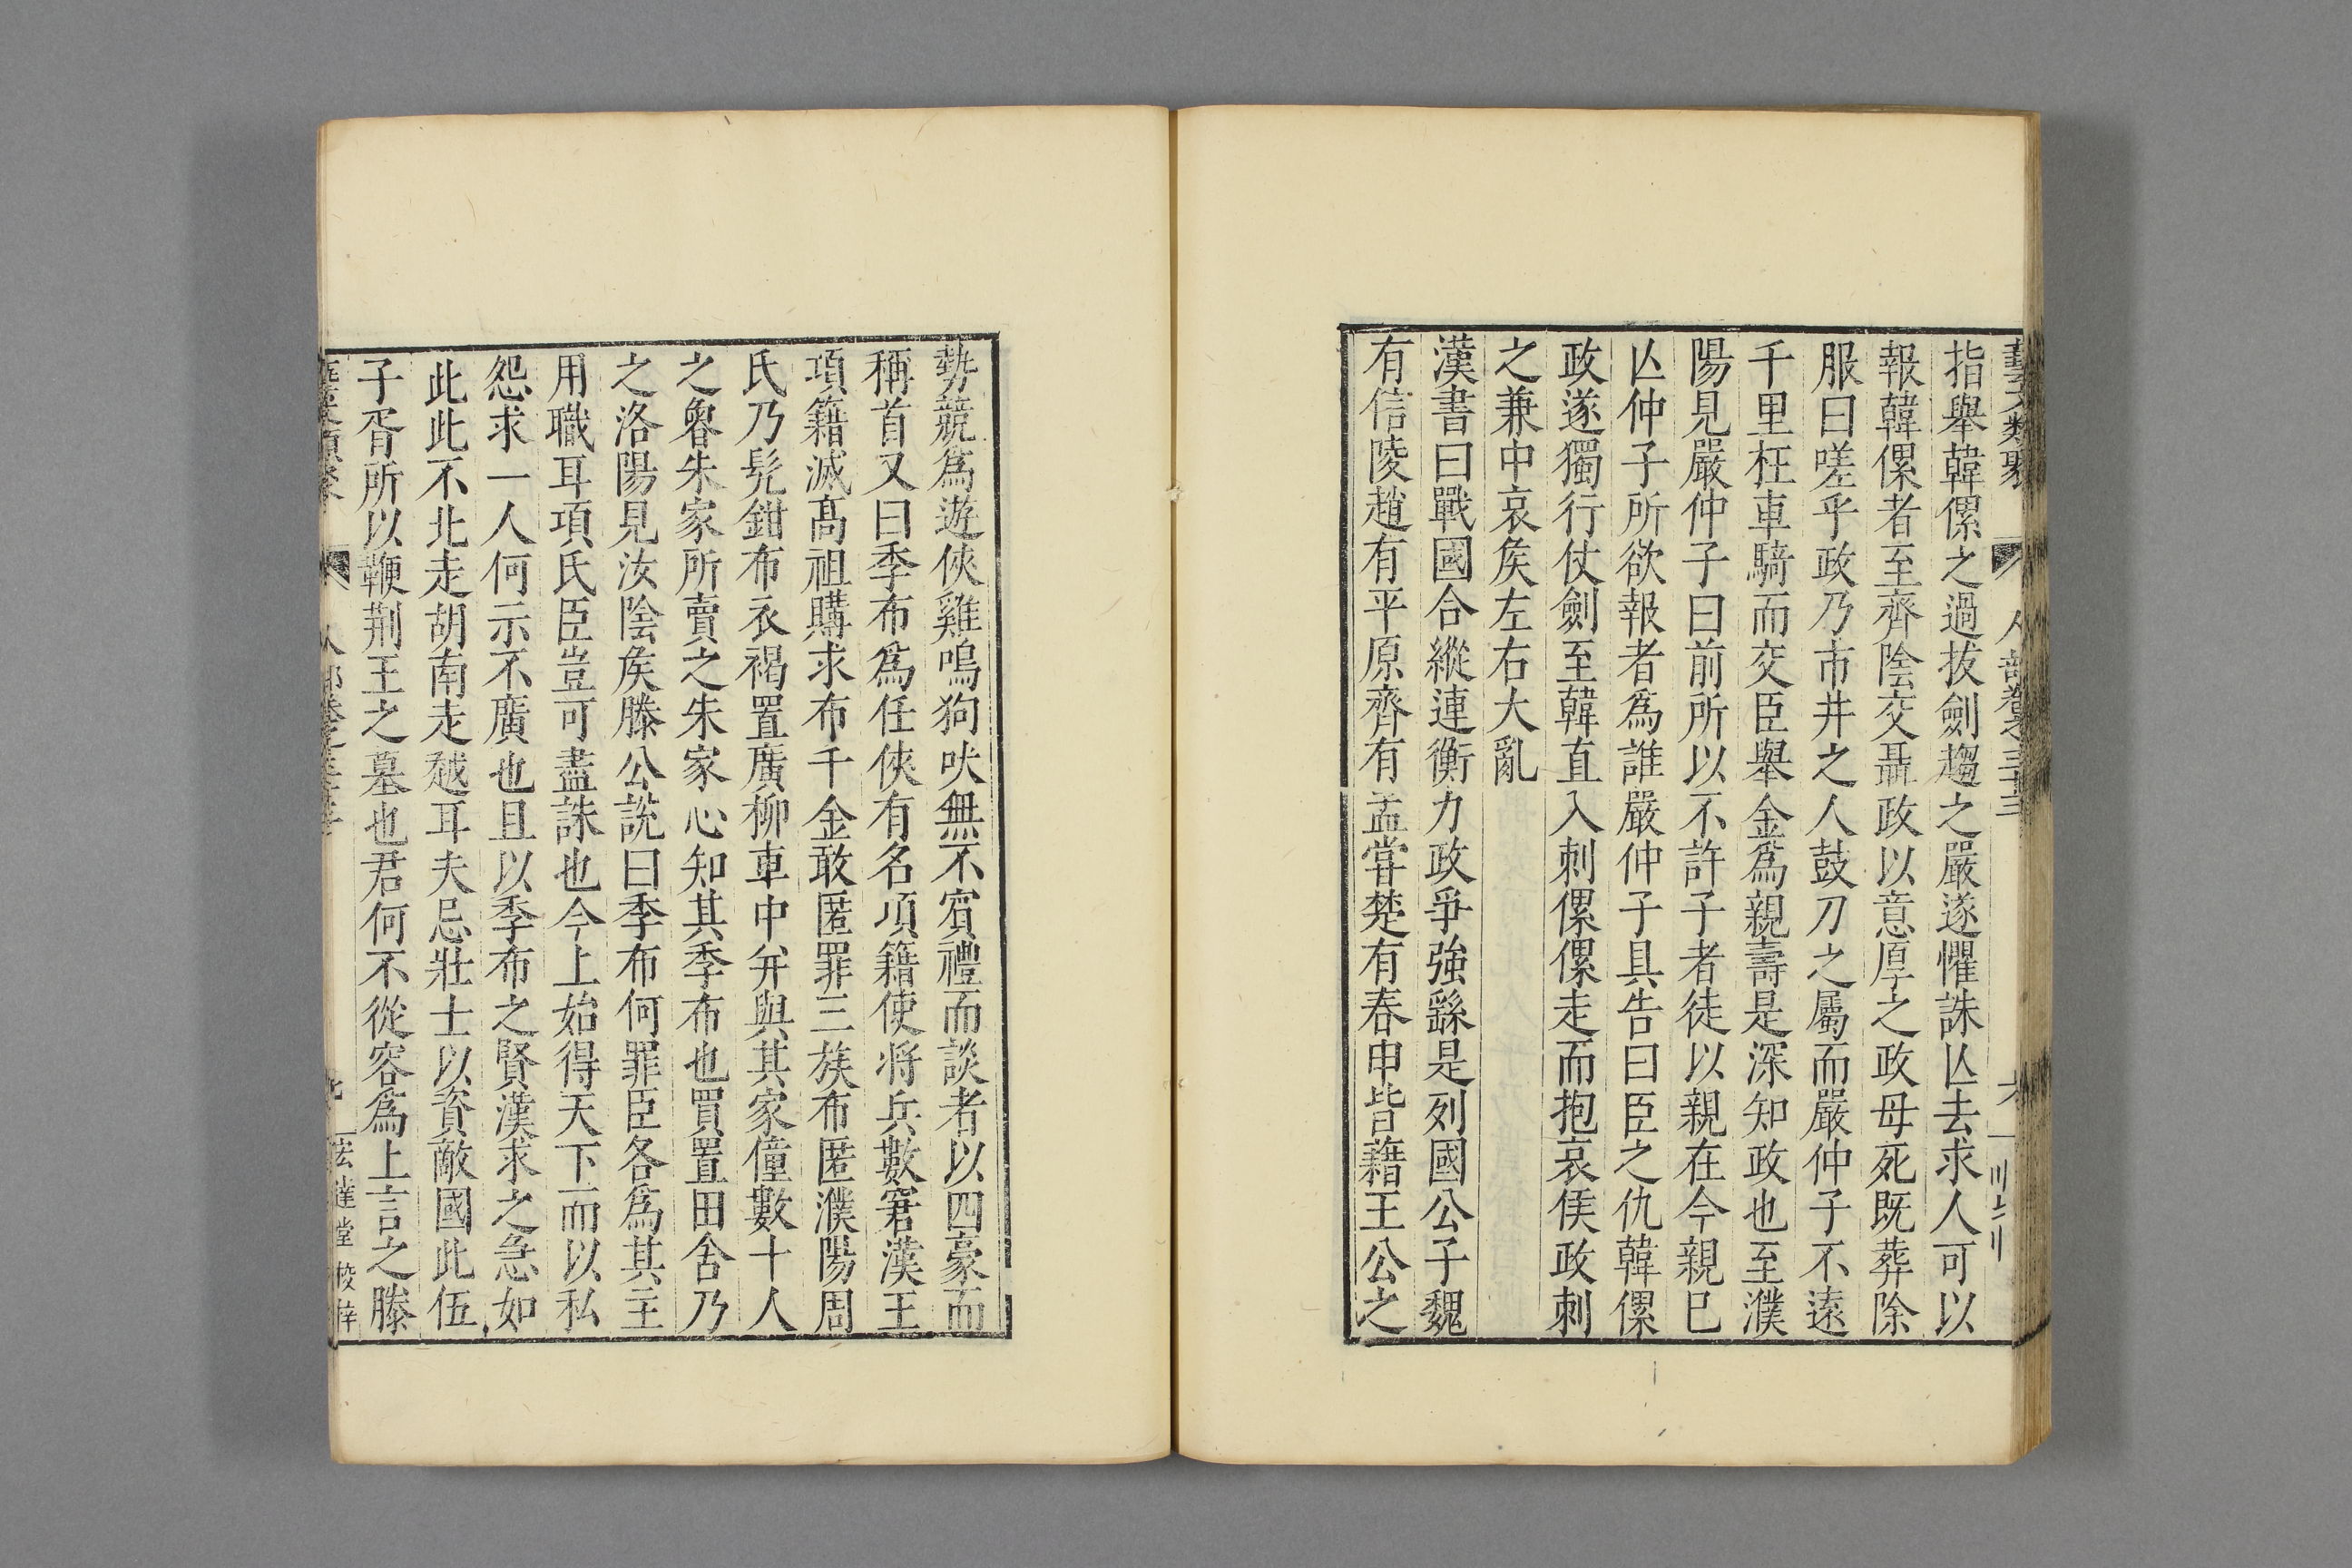 藝文類聚 人部卷之三十三
指舉韓傫之過拔劍趨之嚴遂懼誅亾去求人可以
報韓傫者至齊陰交聶政以意厚之政母死既葬除
服曰嗟乎政乃市井之人鼓刀之屬而嚴仲子不遠
千里枉車騎而交臣舉金爲親壽是深知政也至濮
陽見嚴仲子曰前所以不許子者徒以親在今親巳
亾仲子所欲報者爲誰嚴仲子具告曰臣之仇韓傫
政遂獨行仗劍至韓直入刺傫傫走而抱哀侯政刺
之兼中哀矦左右大亂
漢書曰戰國合縱連衡力政爭強繇是列國公子魏
有信陵趙有平原齊有孟甞楚有春申皆藉王公之
勢競爲遊俠雞鳴狗吠無不賓禮而談者以四豪而
稱首又曰季布爲任俠有名項籍使將兵數窘漢王
項籍滅髙祖購求布千金敢匿罪三族布匿濮陽周
氏乃髡鉗布衣褐置廣柳車中并與其家僮數十人
之魯朱家所賣之朱家心知其季布也買置田舍乃
之洛陽見汝陰矦滕公說曰季布何罪臣各爲其主
用職耳項氏臣豈可盡誅也今上始得天下而以私
怨求一人何示不廣也且以季布之賢漢求之急如
此此不北走胡南走越耳夫忌壯士以資敵國此伍
子胥所以鞭荆王之墓也君何不從容爲上言之滕
人部卷之三十三 宏達堂校梓